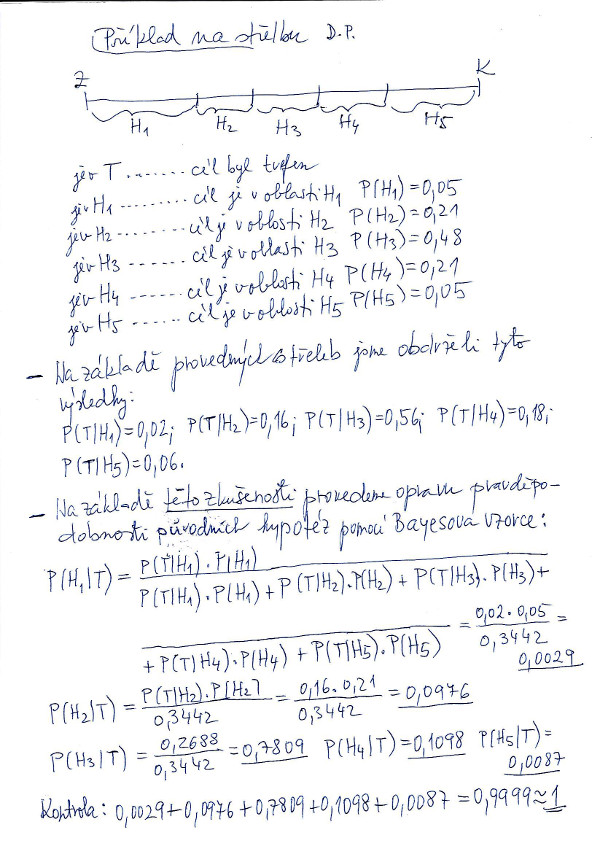 Příklad na střelbu D.P.
Z K
H1 H2 H3 H4 H5
jev T ....... cíl byl trefen
jev H1 ......... cíl je v oblasti H1 P(H1)=0,05
jev H2 ------- cíl je v oblasti H2 P(H2)=0,21
jev H3 ------- cíl je v oblasti H3 P(H3)=0,48
jev H4 ------ cíl je v oblasti H4 P(H4)=0,21
jev H5 ...... cíl je v oblasti H5 P(H5)=0,05
– Na základě provedných střeleb jsme obdrželi tyto
výsledky:
P(T|H1)=0,02; P(T|H2)=0,16; P(T|H3)=0,56; P(T|H4)=0,18;
P(T|H5)=0,06.
– Na základě této zkušenosti provedeme opravu pravděpo-
dobnosti původních hypotéz pomocí Bayesova vzorce:
P(H1|T) = P(T|H1).P(H1)
P(T|H1).P(H1)+P(T|H2).P(H2)+P(T|H3).P(H3)+
+P(T|H4).P(H4)+P(T|H5).P(H5) = 0,02.0,05 =
0,3442
0,0029
P(H2|T) = P(T|H2).P(H2) = 0,16.0,21 = 0,0976
0,3442 0,3442
P(H3|T) = 0,2688 = 0,7809 P(H4|T)=0,1098 P(H5|T)=
0,3442 0,0087
Kontrola: 0,0029+0,0976+0,7809+0,1098+0,0087=0,9999≈1